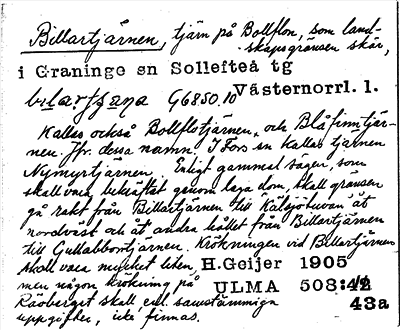 Billartjärnen, tjärn på Bollflon, som land-
skapsgränsen skär,
i Graninge sn Sollefteå tg
Västernorrl. l.
G6850.10
Kallas också Bollflotjärnen, och Blåfinntjär-
nen. Jfr. dessa namn. I Fors sn kallas tjärnen
Nymyrtjärnen. Enligt gammal sägen, som
skall vara bekräftat genom laga dom, skall gränsen
gå rakt från Billartjärnen till Kälsjötuvan åt
nordväst och åt andra hållet från Billartjärnen
till Gullabborrtjärnen. Krökningen vid Billartjärnen
skall vara mycket liten, H.Geijer 1905
men någon krökning på ULMA 508:42
Råberget skall enl. samstämmiga 43a
uppgifter, icke finnas.